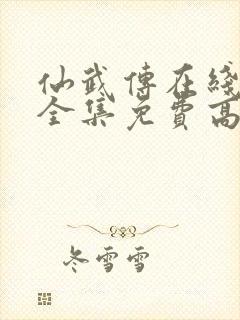 仙武傳在綫
全集免費高
冬雪雪